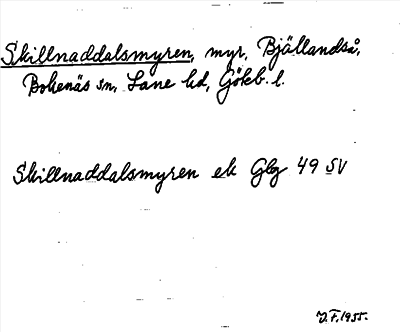 Skillnaddalsmyren, myr, Bjällandså,
Bokenäs sn, Lane hd, Göteb. l.
Skillnaddalsmyren ek Gbg 49 SV
J.F. 1955.